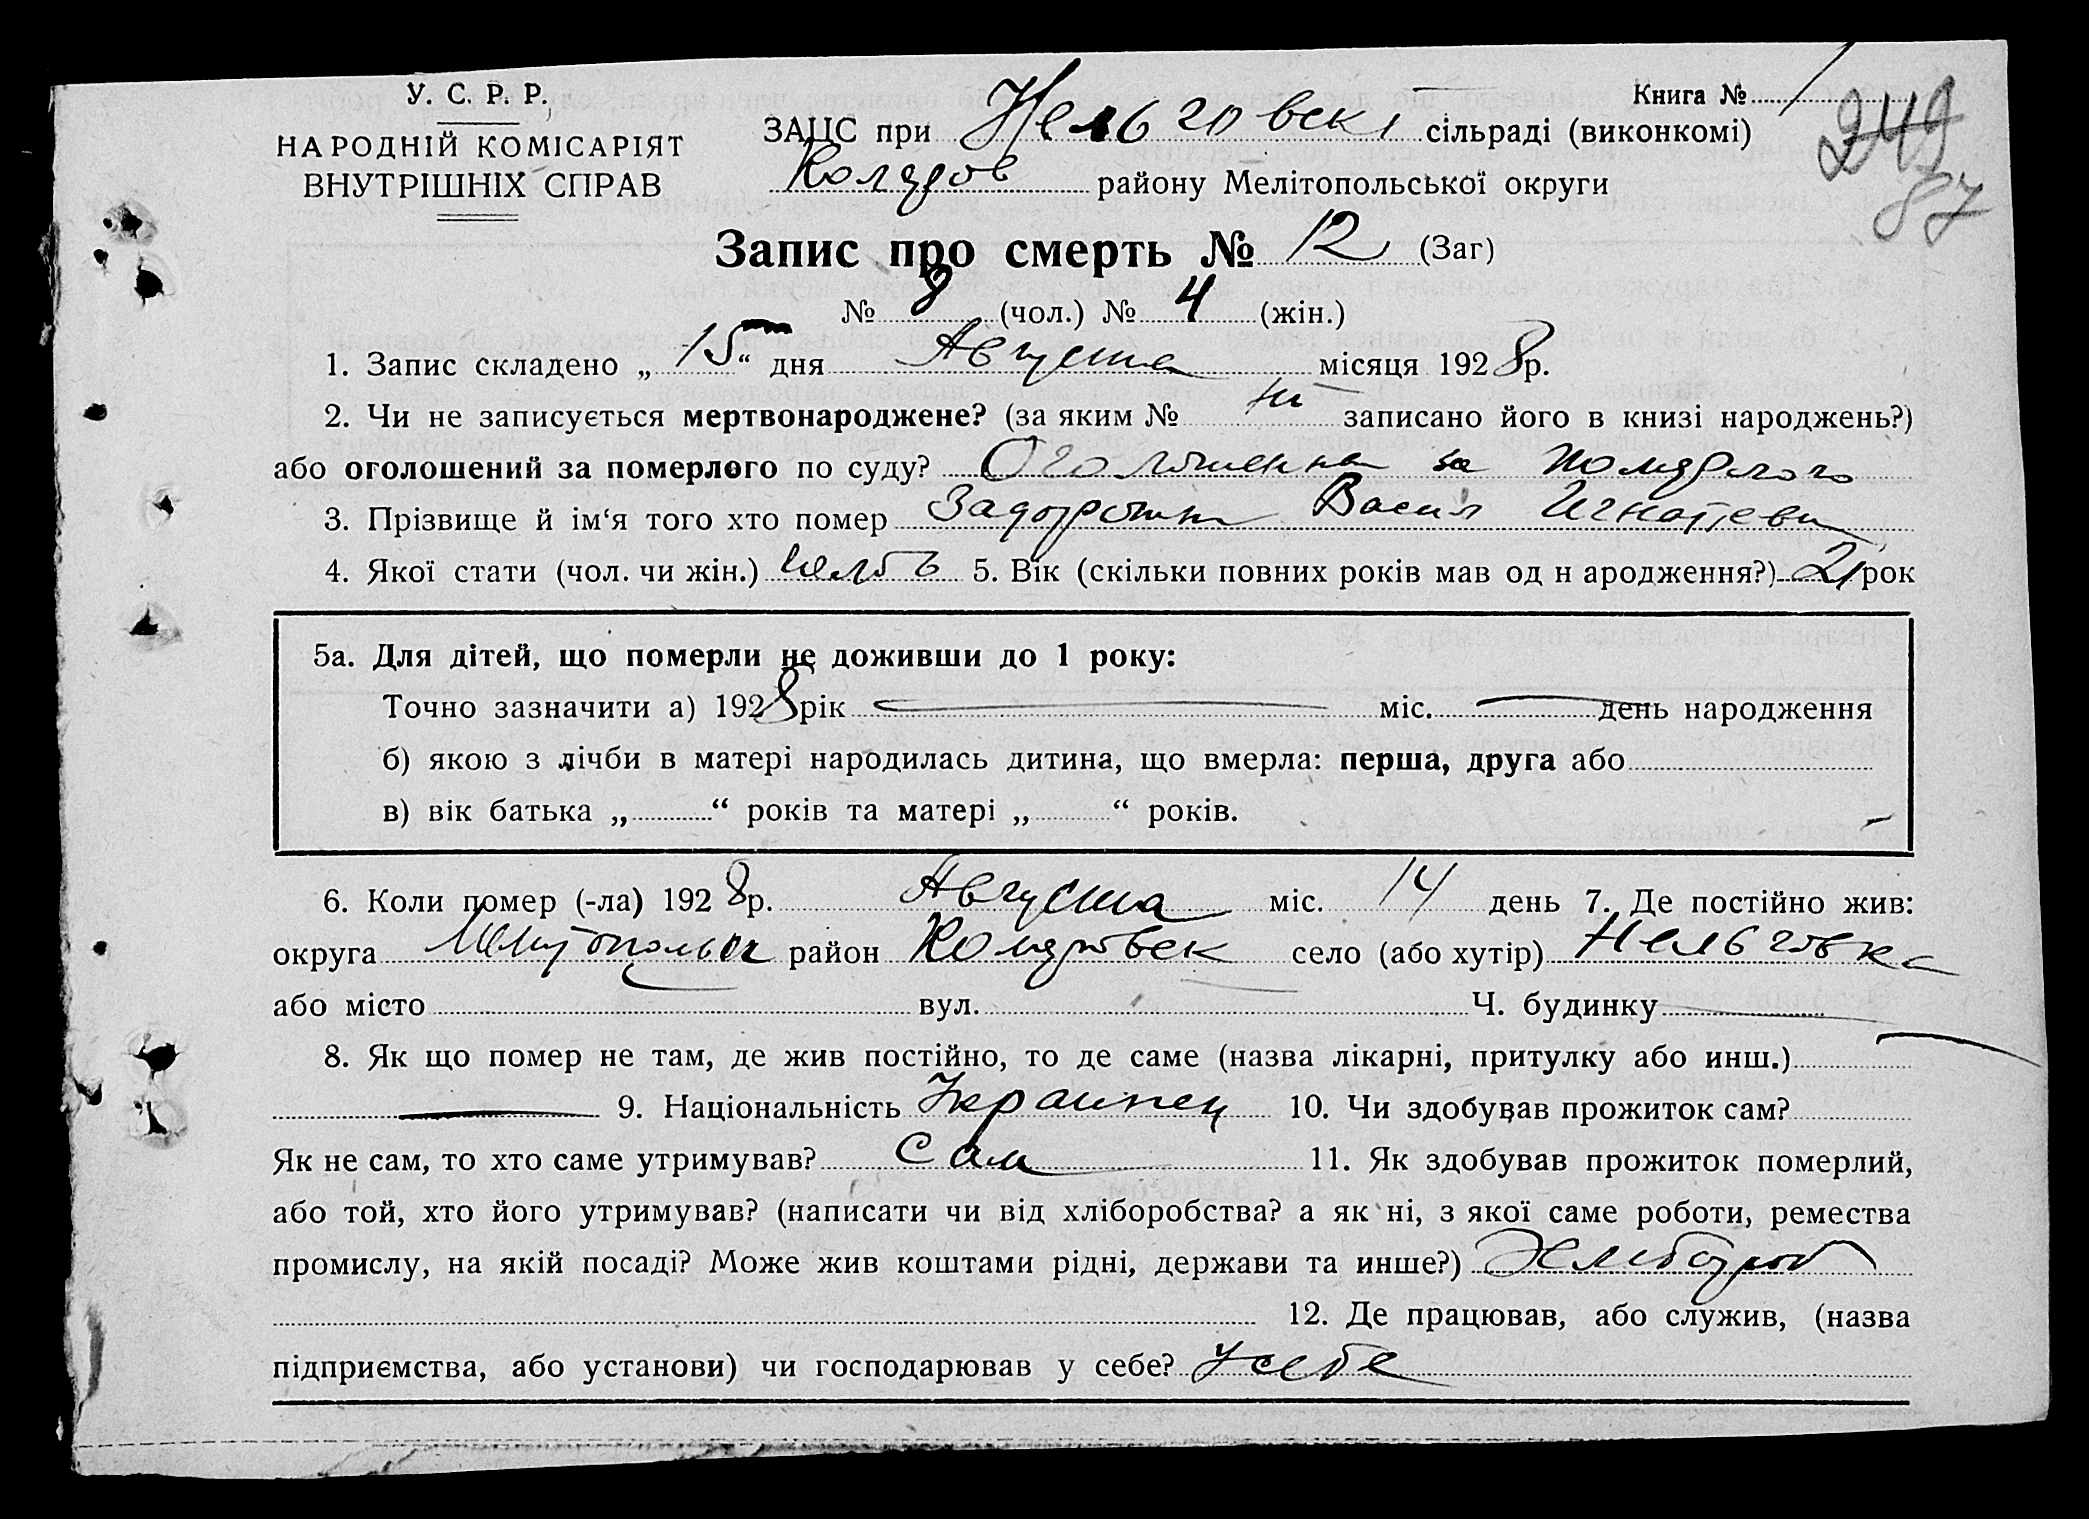 У. С. Р. Р.
НАРОДНІЙ КОМІСАРІЯТ
ВНУТРІШНІХ СПРАВ
Книга № 1
249
87
ЗАЦС при Нельговскі сільраді (виконкомі)
району Мелітопольської округи
Запис про смерть № 12 (Заг)
№ 8 (чол.) № 4 (жін.)
1. Запис складено „ 15 “ дня Августа місяця 1928р.
2. Чи не записується мертвонароджене? (за яким № ні записано його в книзі народжень?)
або оголошений за померлого по суду? за
3. Прізвище й ім‘я того хто помер Васил
4. Якої стати (чол. чи жін.) 5. Вік (скільки повних років мав од н ародження?) 21 рок
5а. Для дітей, що померли не доживши до 1 року:
Точно зазначити а) 1928 рік міс. день народження
б) якою з лічби в матері народилась дитина, що вмерла: перша, друга або
в) вік батька „ “ років та матері „ “ років.
6. Коли помер (-ла) 1928р. Августа міс. 14 день 7. Де постійно жив:
округа район село (або хутір) Нельговка
або місто вул. Ч. будинку
8. Як що помер не там, де жив постійно, то де саме (назва лікарні, притулку або инш.)
9. Національність Украинец 10. Чи здобував прожиток сам?
Як не сам, то хто саме утримував? Сам 11. Як здобував прожиток померлий,
або той, хто його утримував? (написати чи від хліборобства? а як ні, з якої саме роботи, ремества
промислу, на якій посаді? Може жив коштами рідні, держави та инше?) Хлибороб
12. Де працював, або служив, (назва
підприємства, або установи) чи господарював у себе? у себе